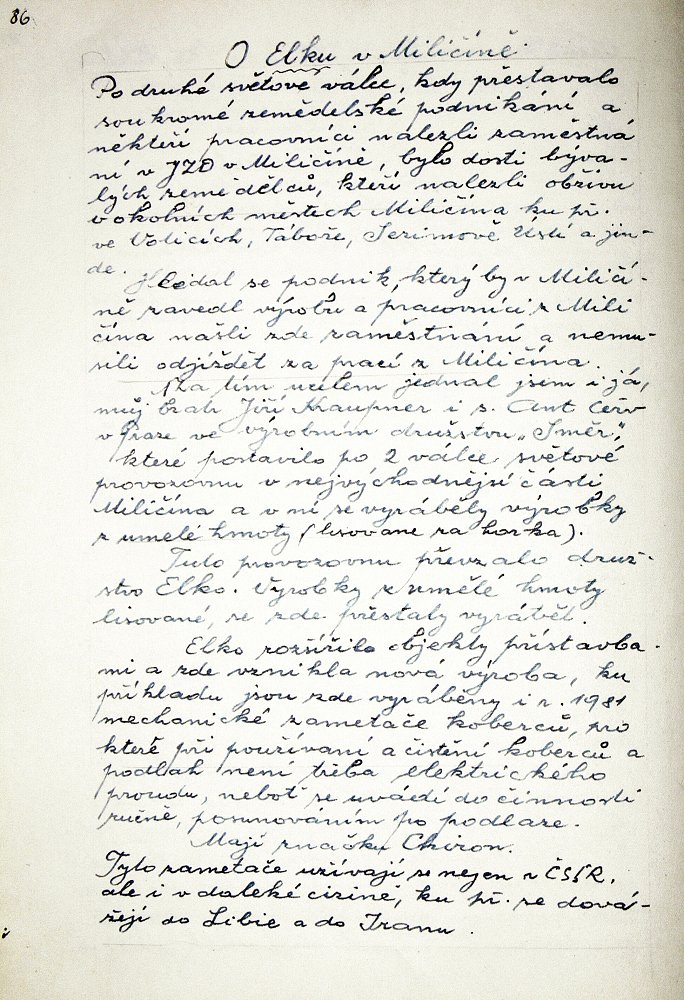 86
O Elku v Miličíně
Po druhé světové válce, kdy přestavalo
soukromé zemědelské podnikání a
někteří pracovníci nalezli zaměstná
ní v JZD v Miličíně, bylo dosti býva-
lých zemědělců, kteří nalezli obživu
v okolních městech Miličína ku př.
ve Voticích, Táboře, Sezimově Ústí a jin-
de.
Hledal se podnik, který by v Miličí-
ně zavedl výrobu a pracovníci z Mili
čína našli zde zaměstnání a nemu-
sili odjíždět za prací z Miličína.
Za tím účelem jednal jsem i já,
můj bratr Jiří Kraupner i s. Ant. Červ
v Praze ve výrobním družstvu „Směr",
které postavilo po 2 válce světové
provozovnu v nejvýchodnější části
Miličína a v ní se vyráběly výrobky
z umělé hmoty (lisované za horka).
Tuto provozovnu převzalo druž-
stvo Elko. Výrobky z umělé hmoty
lisované, se zde přestaly vyrábět.
Elko rozšířilo objekty přístavba-
mi a zde vznikla nová výroba, ku
příkladu jsou zde vyráběny i r. 1981
mechanické zametače koberců, pro
které při používaní a čistění koberců a
podlah není třeba elektrického
proudu, neboť se uvádí do činnosti
ručně, posunováním po podlaze.
Mají značku Chiron.
Tyto zametače užívají se nejen v ČSSR,
ale i v daleké cizině, ku př. se dová-
žejí do Libie a do Iranu.